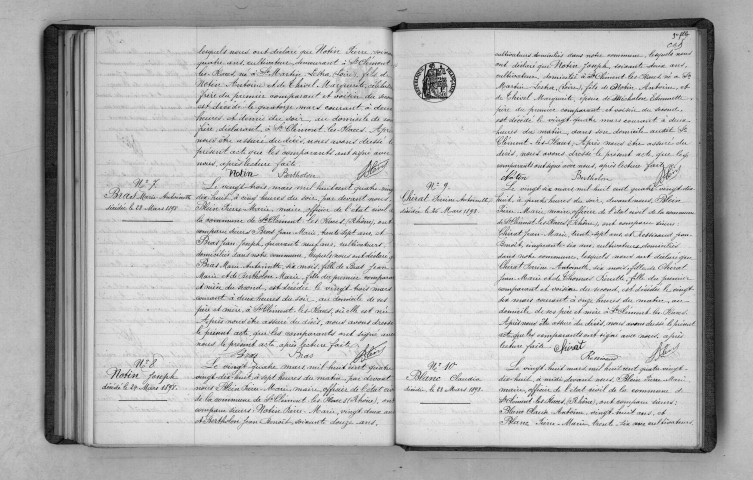 lesquels nous ont déclaré que Notin Pierre
ans, cultivateur, demeurant à St Clément
les Places né à St Martin Lestra (Loire) fils de
Notin Antoine et de Chirel Marguerite, célibataire
frère du premier comparant et voisin du second
est décédé le quatorze mars courant à deux
heures et demie du soir, au domicile de son
frère, déclarant, à St Clément les Places. Après
nous être assuré du décès, nous avons dressé le
présent acte que les comparants ont signé avec
nous, après lecture faite
Notin Bertholon
No 7.
Bras Marie Antoinette
décédée le 23 Mars 1898
Le vingt-trois mars mil huit cent quatre vingt
dix huit, à cinq heures du soir, par devant nous,
Blein Pierre Marie, maire, officier de l'état civil de
la commune de St Clément les Places (Rhône), ont
comparu sieurs Bras Jean Marie, trente sept ans, et
Bras Jean Joseph, quarante neuf ans, cultivateurs,
domiciliés dans notre commune, lesquels nous ont déclaré que
Bras Marie Antoinette, six mois, fille de Bras Jean
Marie et de Bertholon Marie, fille du premier comparant
et nièce du second, est décédée le vingt trois mars
courant à deux heures du soir, au domicile de ses
père et mère, à St Clément les Places, où elle est née.
Après nous être assuré du décès, nous avons dressé
le présent acte, que les comparants ont signé avec
nous, après lecture faite
Bras Bras
No 8
Notin Joseph
décédé le 24 Mars 1898.
Le vingt quatre mars mil huit cent quatre
vingt dix huit, à sept heures du matin, par devant
nous Blein Pierre Marie, maire, officier de l'état civil
de la commune de St Clément les Places (Rhône), ont
comparu sieurs Notin Pierre Marie, vingt deux ans
et Bertholon Jean Benoît, soixante douze ans,
cultivateurs domiciliés dans notre commune, lesquels nous
ont déclaré que Notin Joseph, soixante deux ans,
cultivateur, domicilié à St Clément les Places né à St
Martin Lestra (Loire), fils de Notin Antoine, et
de Chirel Marguerite, époux de Etiennette
père du premier comparant et voisin du second,
est décédé le vingt quatre mars courant à deux
heures du matin, dans son domicile audit St
Clément les Places. Après nous être assuré du
décès, nous avons dressé le présent acte, que les
comparants ont signé avec nous, après lecture faite
Notin Bertholon
No 9
Chirat Antoinette
décédée le 26 Mars 1898.
Le vingt six mars mil huit cent quatre vingt dix
huit, à quatre heures du soir, devant nous, Blein
Pierre Marie, maire, officier de l'état civil de la commune
de St Clément les Places (Rhône), ont comparu sieurs
Chirat Jean Marie, trente sept ans et
Benoît, cinquante six ans, cultivateurs, domiciliés
dans notre commune, lesquels nous ont déclaré que
Chirat Antoinette, six mois, fille de Chirat
Jean Marie et de Thomas fille du premier
comparant et voisine du second, est décédée le vingt
six mars courant à onze heures du matin, au
domicile de ses père et mère à St Clément les Places.
Après nous être assuré du décès, nous avons dressé le présent
acte que les comparants ont signé avec nous, après
lecture faite Chirat
No 10
Blanc Claudia
décédée le 28 Mars 1898.
Le vingt huit mars mil huit cent quatre vingt
dix huit, à midi devant nous, Blein Pierre Marie,
maire, officier de l'état civil de la commune de
St Clément les Places (Rhône), ont comparu sieurs
Blanc Claude Antoine, vingt huit ans, et
Blanc Pierre Marie, trente six ans cultivateurs